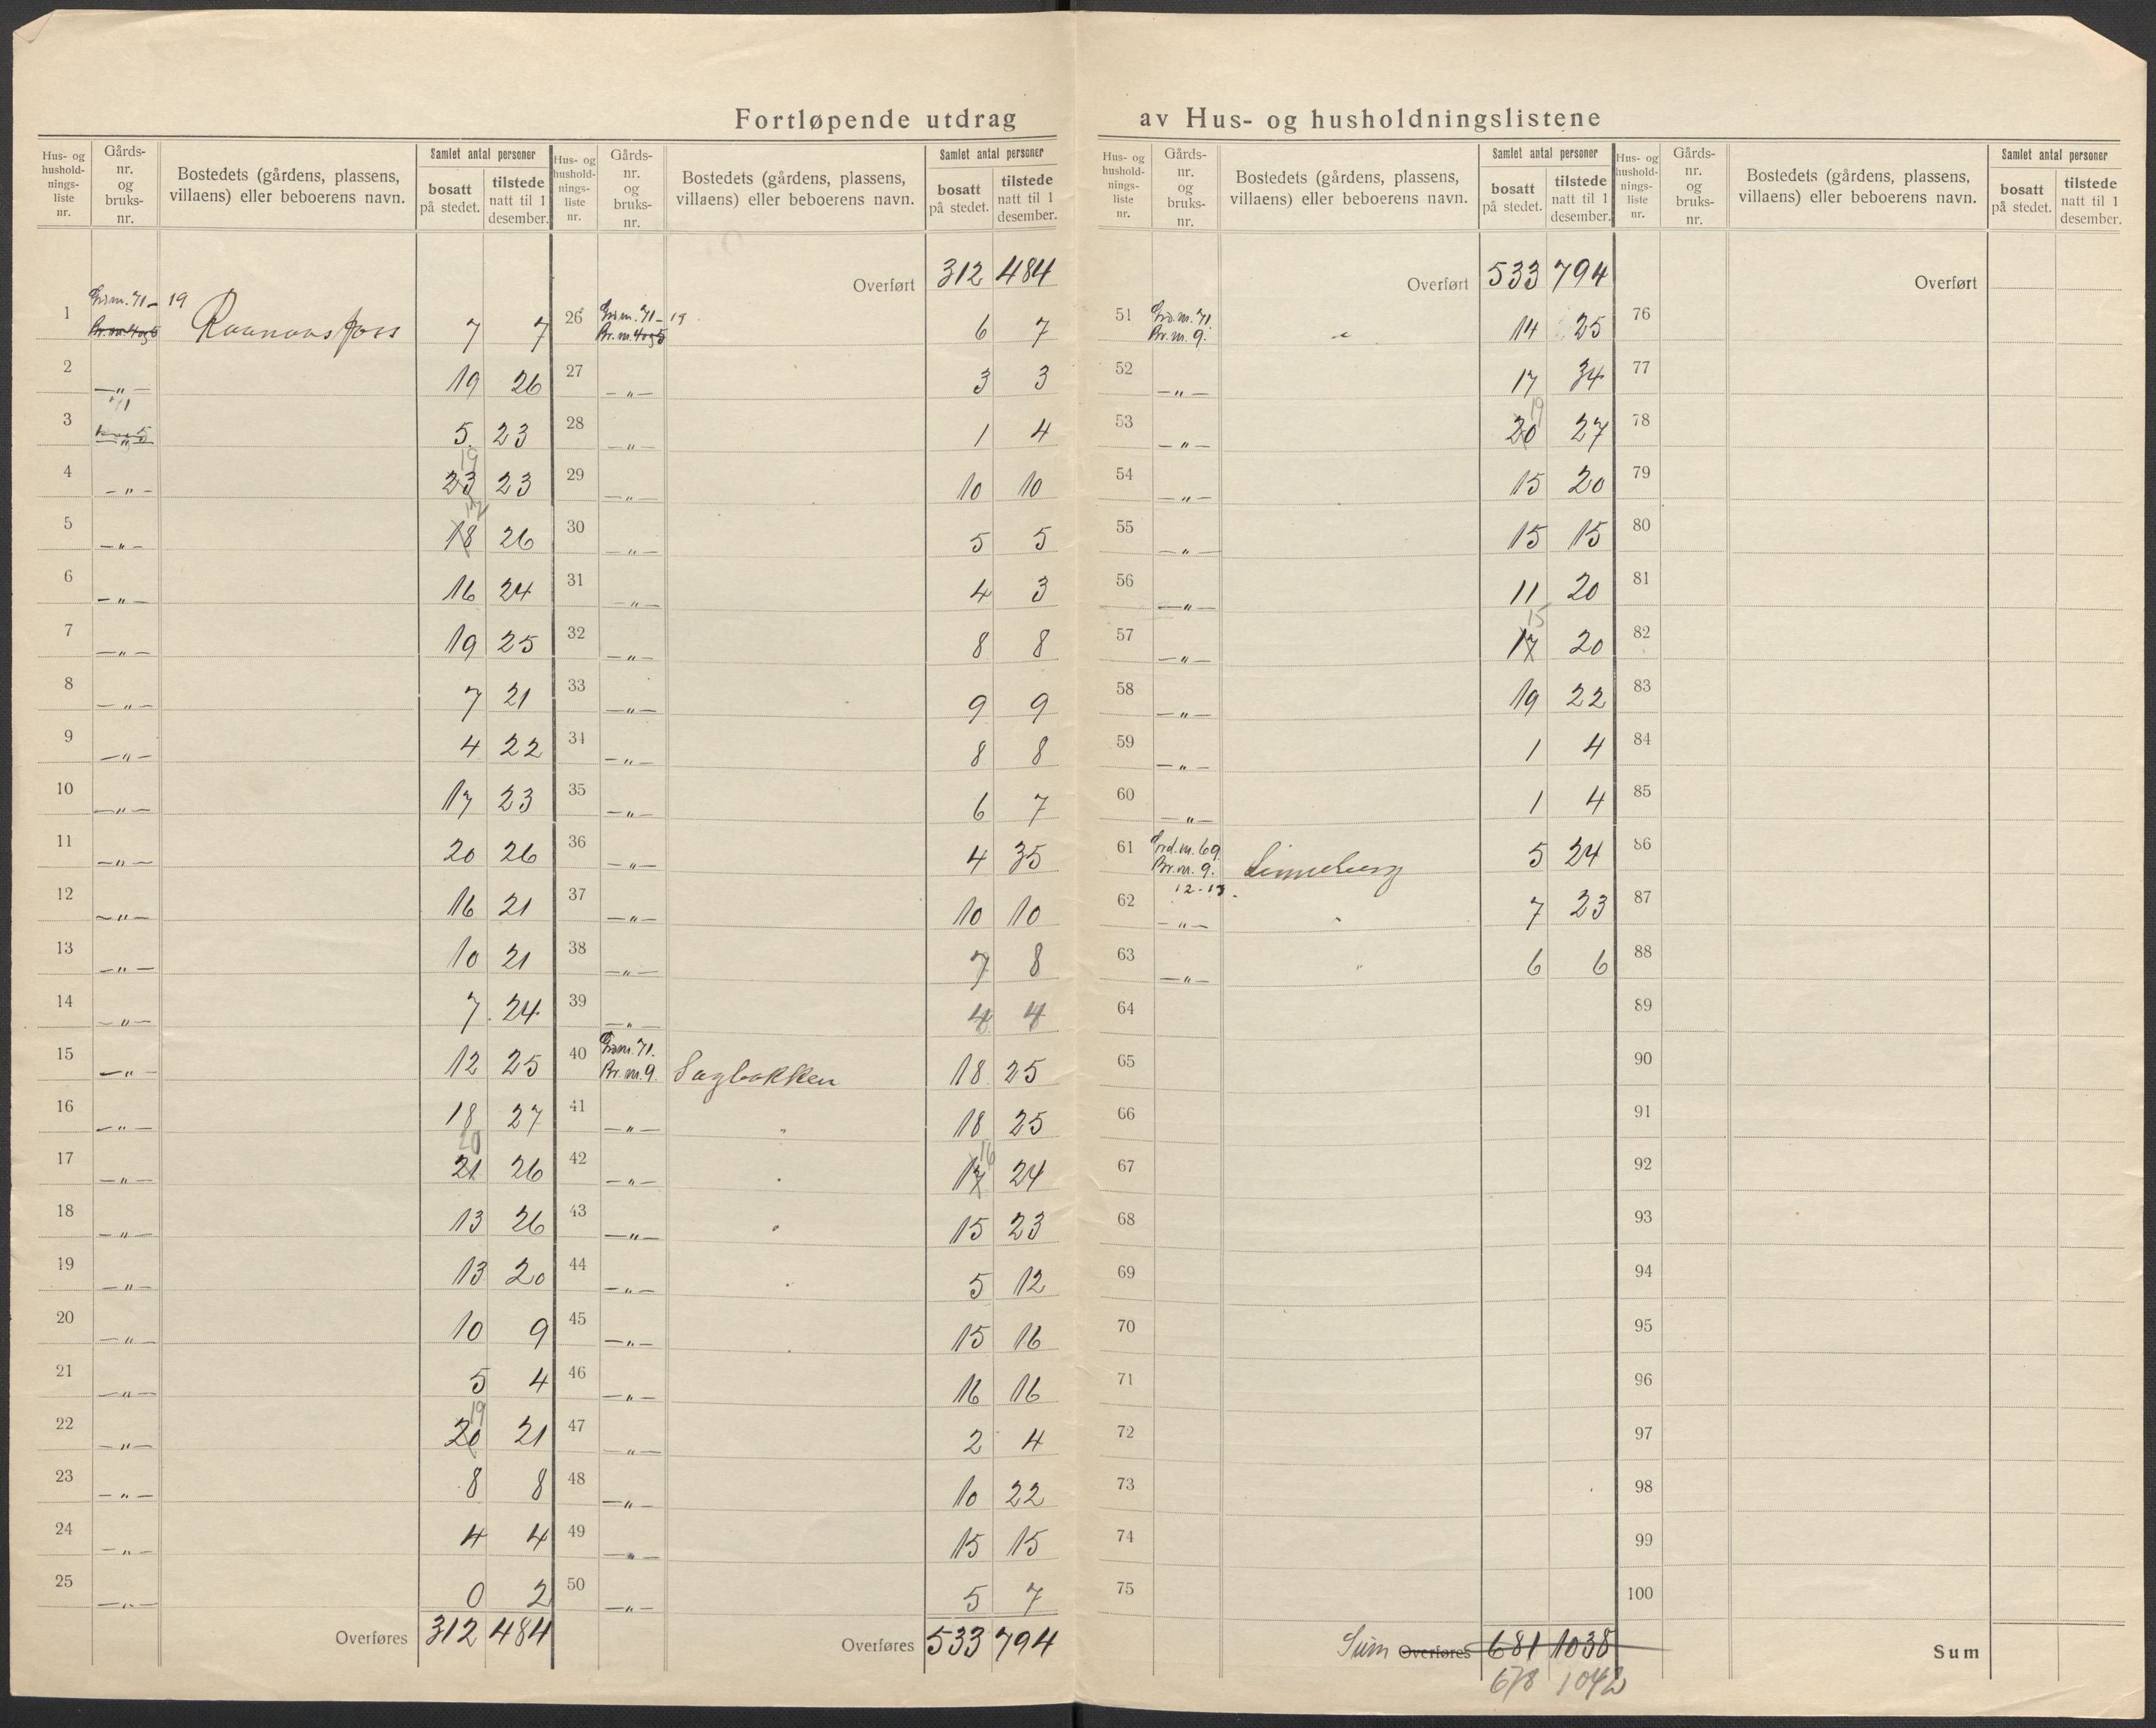 Fortløpende utdrag av Hus- og husholdningslistene
Hus- og hushold-nings-liste nr. Gårds-nr. og bruks-nr. Bostedets (gårdens, plassens, villaens) eller beboerens navn. Samlet antal personer bosatt på stedet. tilstede natt til 1 desember.
1 Gr.nr. 71 - 19 Br.nr. 4 og 5 Raanaasfoss 7 7
2 —„— 19 26
3 —„— 5 23
4 —„— 23 19 23
5 —„— 18 26
6 —„— 16 24
7 —„— 19 25
8 —„— 7 21
9 —„— 4 22
10 —„— 17 23
11 —„— 20 26
12 —„— 16 21
13 —„— 10 21
14 —„— 7 24
15 —„— 12 25
16 —„— 18 27
17 —„— 21 20 26
18 —„— 13 26
19 —„— 13 20
20 —„— 10 9
21 —„— 5 4
22 —„— 20 19 21
23 —„— 8 8
24 —„— 4 4
25 —„— 0 2
Overføres 312 484
Hus- og hushold-nings-liste nr. Gårds-nr. og bruks-nr. Bostedets (gårdens, plassens, villaens) eller beboerens navn. Samlet antal personer bosatt på stedet. tilstede natt til 1 desember.
Overført 312 484
26 Gr.nr. 71 - 19 Br.nr. 4 og 5 6 7
27 —„— 3 3
28 —„— 1 4
29 —„— 10 10
30 —„— 5 5
31 —„— 4 3
32 —„— 8 8
33 —„— 9 9
34 —„— 8 8
35 —„— 6 7
36 —„— 4 35
37 —„— 10 10
38 —„— 7 8
39 —„— 4 4
40 Gr.nr. 71. Br.nr. 9. Sagbakken 18 25
41 —„— „ 18 25
42 —„— „ 17 16 24
43 —„— „ 15 23
44 —„— „ 5 12
45 —„— „ 15 16
46 —„— 16 16
47 —„— 2 4
48 —„— 10 22
49 —„— 15 15
50 —„— 5 7
Overføres 533 794
Hus- og hushold-nings-liste nr. Gårds-nr. og bruks-nr. Bostedets (gårdens, plassens, villaens) eller beboerens navn. Samlet antal personer bosatt på stedet. tilstede natt til 1 desember.
Overført 533 794
51 Grd.nr. 71. Br.nr. 9. „ 14 25
52 —„— 17 34
53 —„— 20 19 27
54 —„— 15 20
55 —„— 15 15
56 —„— 11 20
57 —„— 17 15 20
58 —„— 19 22
59 —„— 1 4
60 —„— 1 4
61 Grd.nr. 69. Br.nr. 9. 12-13. Linneberg 5 24
62 —„— „ 7 23
63 —„— „ 6 6
64
65
66
67
68
69
70
71
72
73
74
75
Sum Overføres 681 1038
678 1042
Hus- og hushold-nings-liste nr. Gårds-nr. og bruks-nr. Bostedets (gårdens, plassens, villaens) eller beboerens navn. Samlet antal personer bosatt på stedet. tilstede natt til 1 desember.
Overført
76
77
78
79
80
81
82
83
84
85
86
87
88
89
90
91
92
93
94
95
96
97
98
99
100
Sum